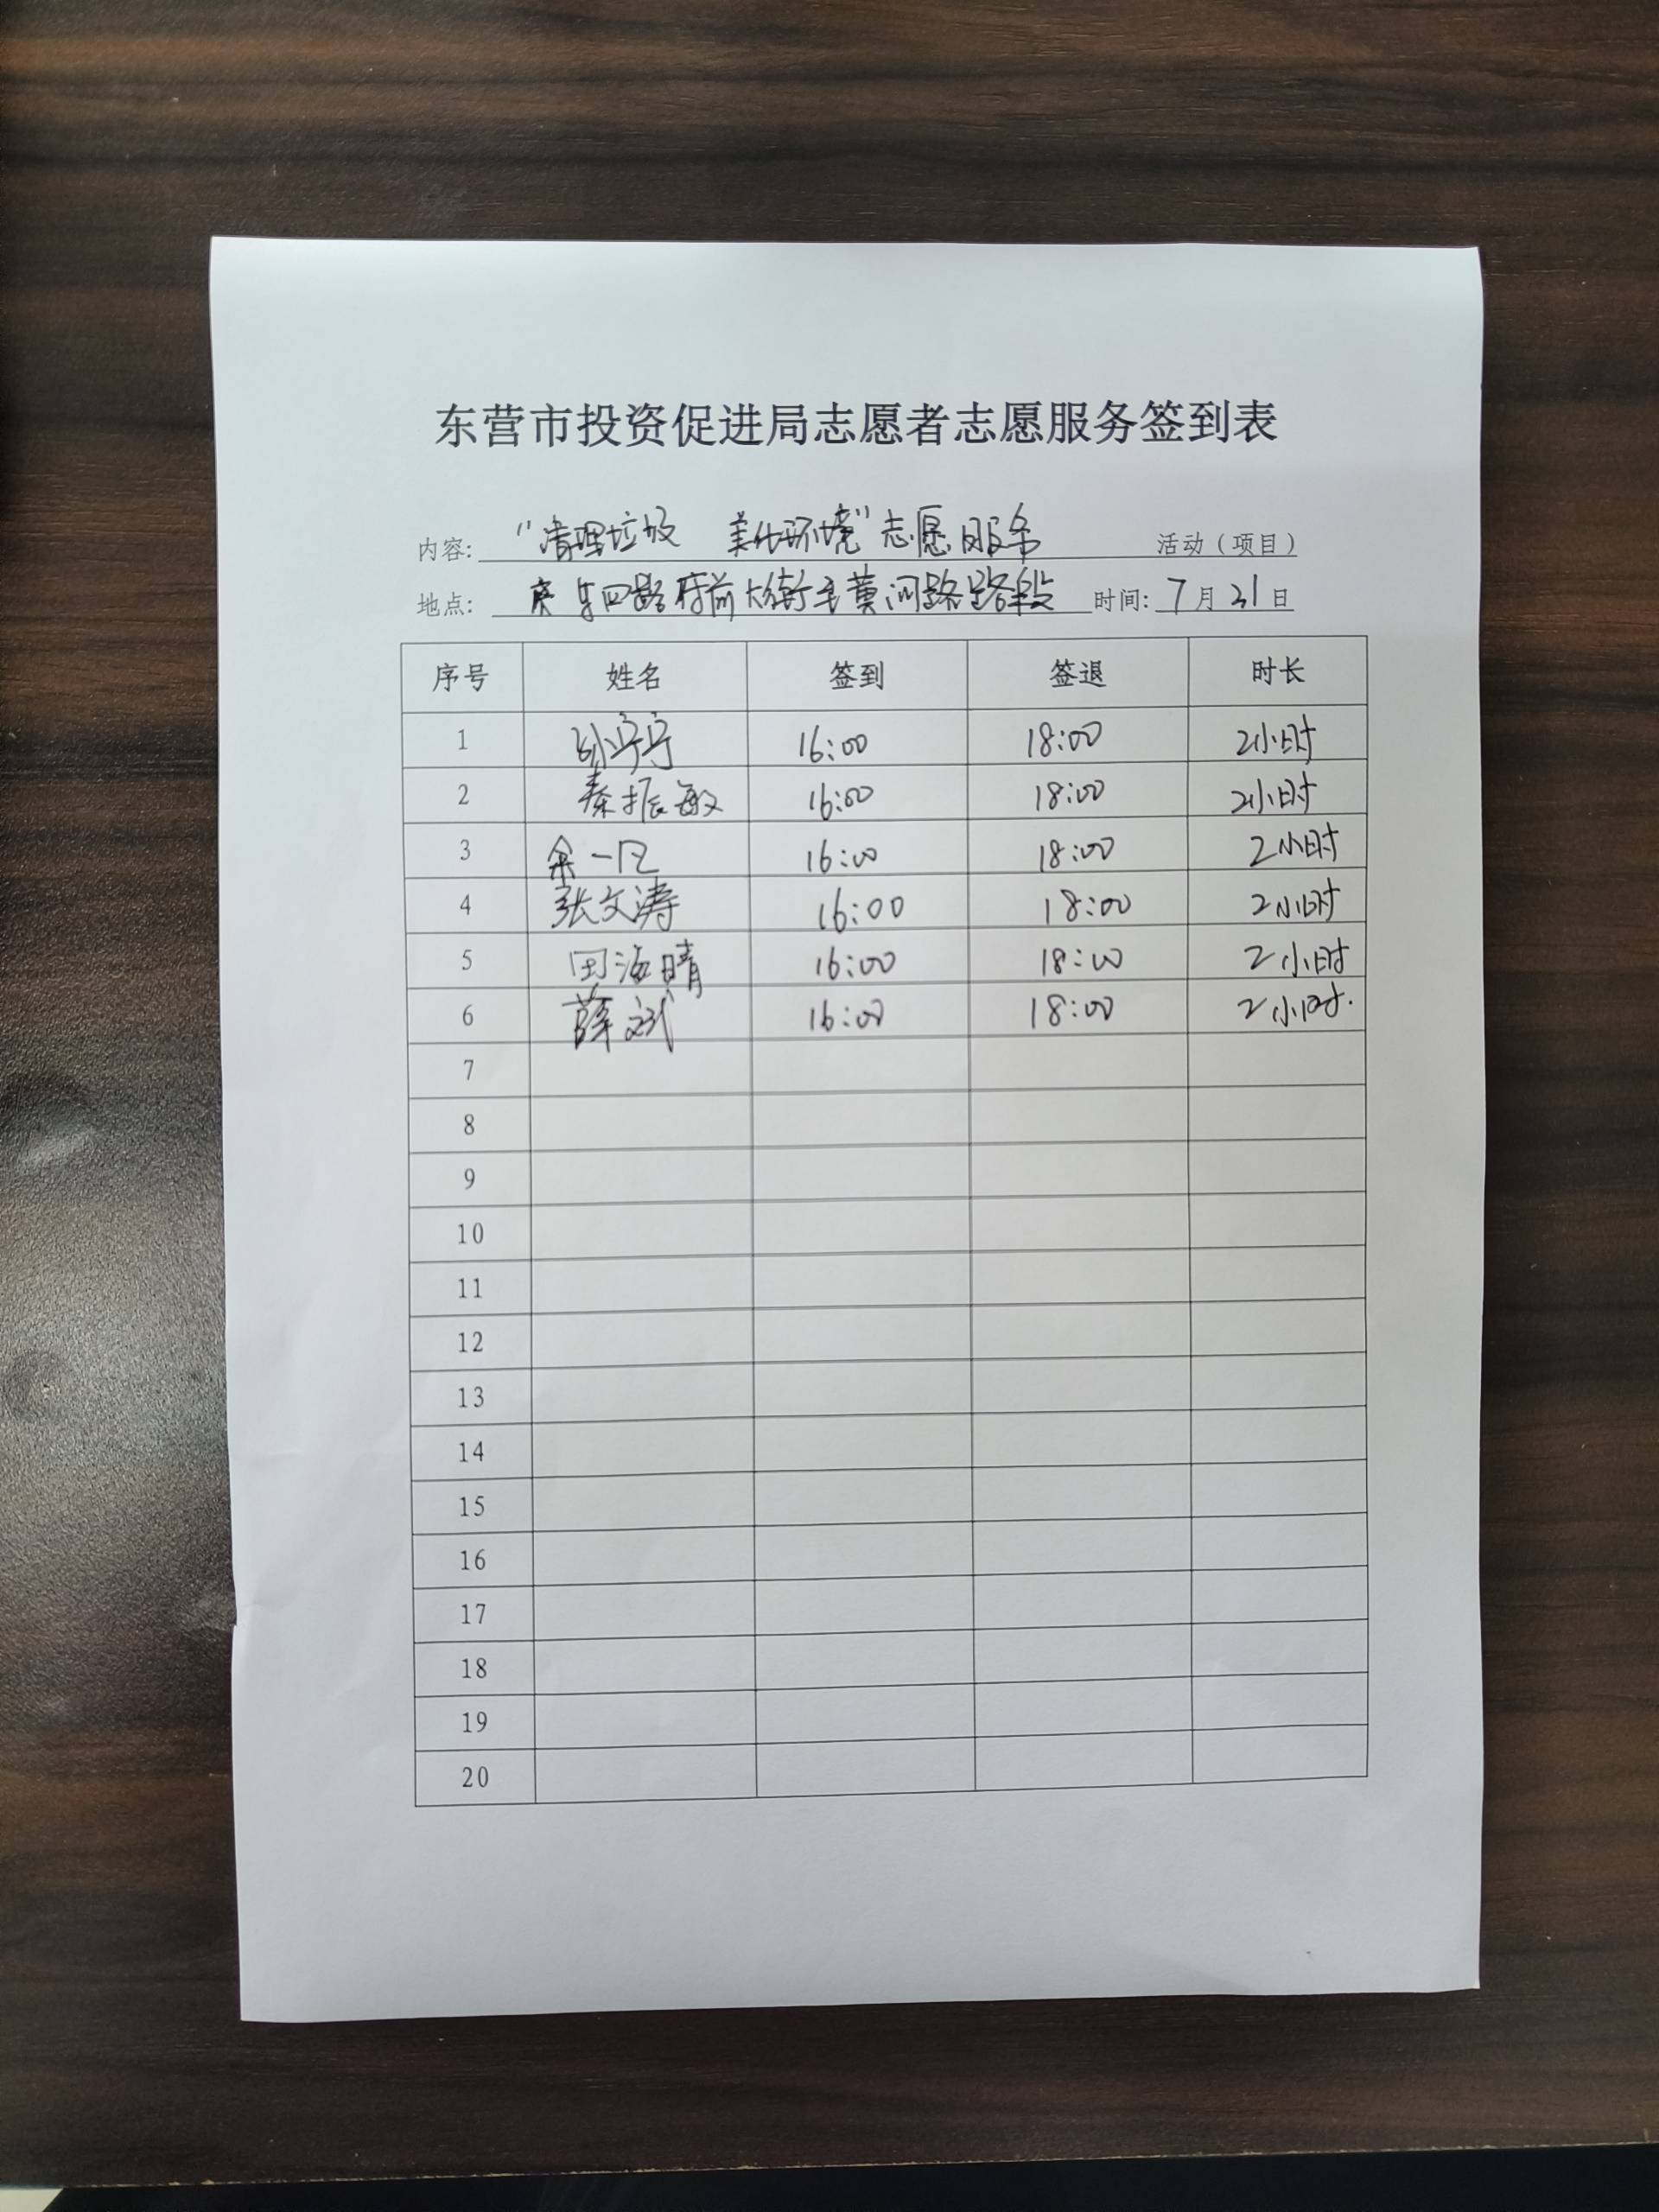 东营市投资促进局志愿者志愿服务签到表
内容: "清理垃圾 美化环境"志愿服务 活动（项目）
地点: 东四路府前大街至黄河路路段 时间: 7月31日
序号 姓名 签到 签退 时长
1 孙宁宁 16:00 18:00 2小时
2 秦振敏 16:00 18:00 2小时
3 余一凡 16:00 18:00 2小时
4 张文涛 16:00 18:00 2小时
5 田海晴 16:00 18:00 2小时
6 薛斌 16:00 18:00 2小时.
7
8
9
10
11
12
13
14
15
16
17
18
19
20